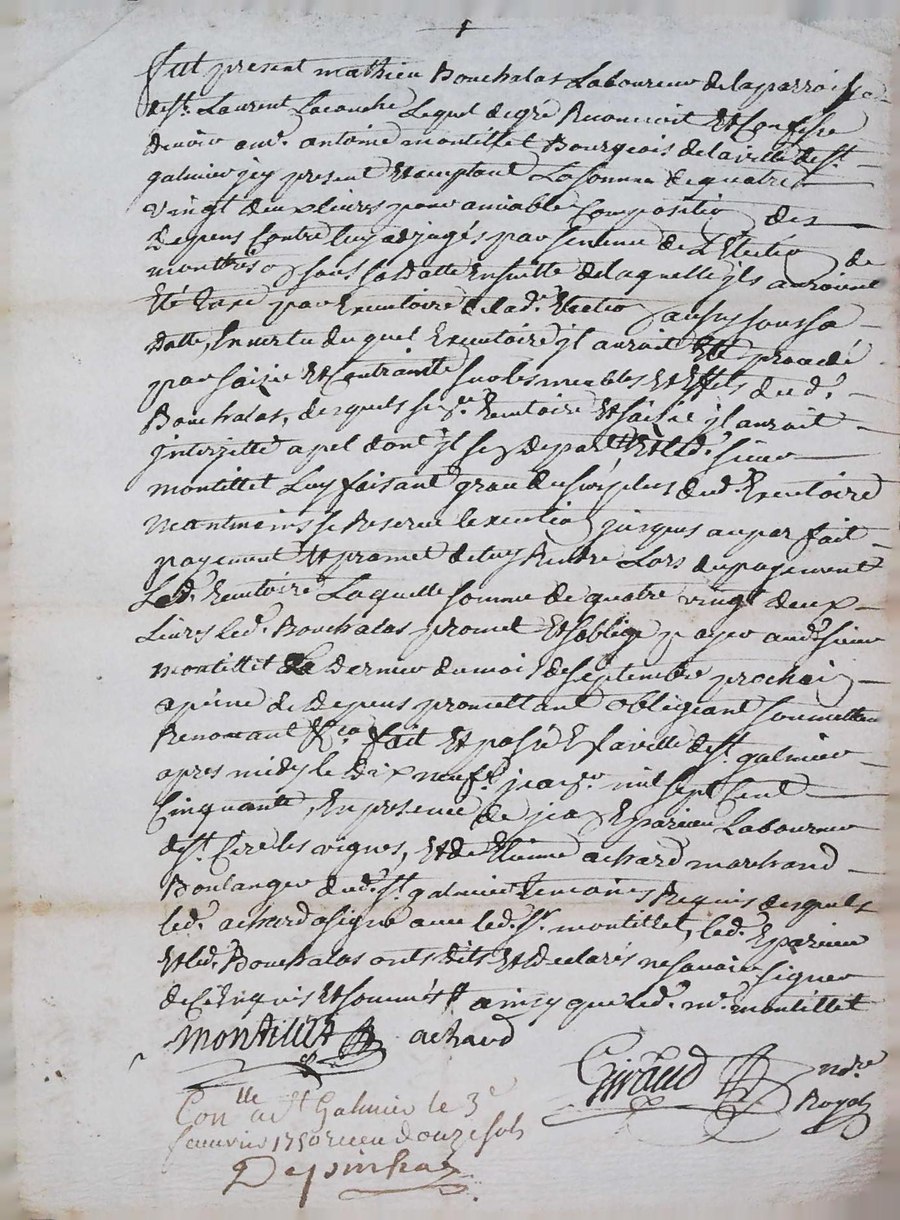 fut present mathieu Bouchalas Laboureur de la parroisse
de st. Laurent Laconche Lequel de gré Reconnoit Et Confesse
devoir a mr. antoine montillet Bourgeois de la ville de st.
galmier jcy present Et acceptant La somme de quatre
vingt deux livres pour amiable Compositio des
depens Contre luy adjugés par sentence de L'Electio de
montbriso sous sa datte Ensuitte de laquelle jls auroient
Eté taxé par Executoire de lad. Electio aussy sous sa
datte, En vertu duquel Executoire jl auroit Eté procedé
par saisie Et Contrainte sur les meubles Et Effets dud.
Bouchalas, desquels Executoire Et saisie jl auroit
jnterjetté apel dont jl se depart, Et led. sieur
montillet Luy faisant grace du surplus dud. Executoire
neantmoins se Reserve l'executio jusques au parfait
payement Et promet de luy Rendre Lors du payement
Led. Executoire Laquelle somme de quatre vingt deux
Livres led. Bouchalas promet Et s'oblige payer aud. sieur
montillet Le dernier du mois de septembre prochai
a peine de depens promettant obligeant soumettan
Renoncant &ca fait Et passé En la ville de st. galmier
apres midy le dix neuf mil sept Cent
Cinquante, En presence de jea Eparieu Laboureur
de st. Cire les vignes, Et de Etienne achard marchand
Boulanger dud. st. galmier temoins Requis desquels
led. achard a signé avec led. sr. montillet, led. Eparieu
Et led. Bouchalas onts dits Et declarés ne savoir signer
de Ce Enquis Et sommés ainsy que led. mr. montillet
MONTILLET achard
Giraud nore
Royal
Conlle a st Galmier le 3e
1750 Receu douze sols
Depinhac